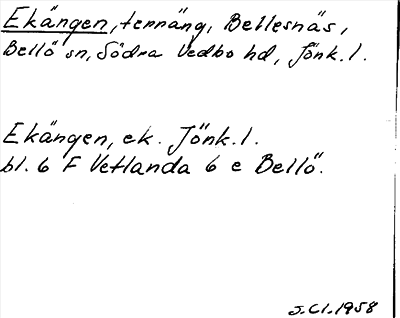 Ekängen, terräng, Bellesnäs,
Bellö sn, Södra Vedbo hd, Jönk. l.
Ekängen, ek. Jönk. l.
bl. 6 F Vetlanda 6 e Bellö.
J. Cl. 1958